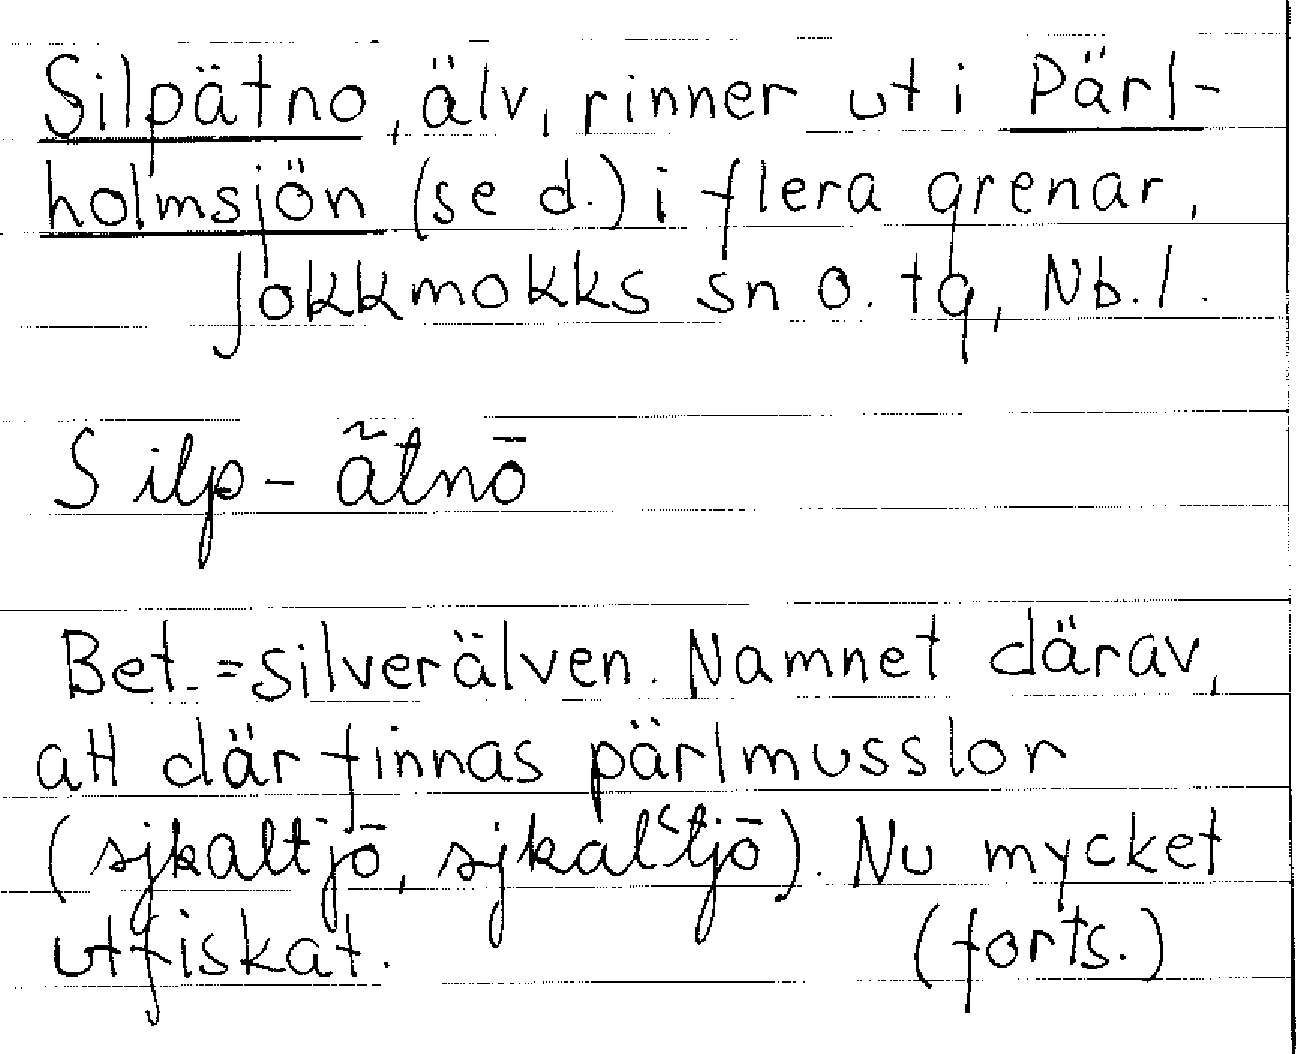 Silpätno, älv, rinner ut i Pärl-
holmsjön (se d.) i flera grenar,
Jokkmokks sn o. tg, Nb. l.
Silp - ä̃tnō
Bet. = silverälven. Namnet därav,
att där finnas pärlmusslor
(sjkaltjō, sjkalʿtjō). Nu mycket
utfiskat. (forts.)